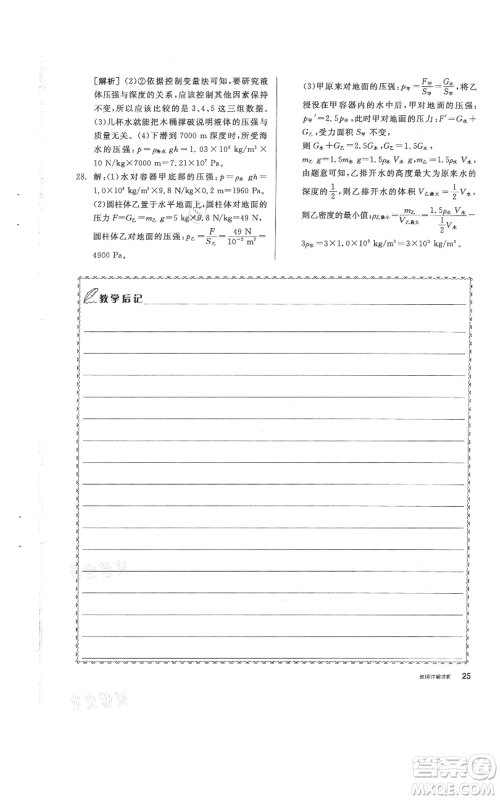 [解析](2)②依据控制变量法可知,要研究液
体压强与深度的关系,应该控制其他因素保持
不变,所以应该比较的是3、4、5这三组数据。
(3)几杯水就能把木桶撑破说明液体的压强与
质量无关。(4)下潜到7000 m深度时,所受海
水的压强:p=ρ海水gh=1.03×10³ kg/m³×
10 N/kg×7000 m=7.21×10⁷ Pa。
28. 解:(1)水对容器甲底部的压强:p=ρ水gh=
1.0×10³ kg/m³×9.8 N/kg×0.2 m=1960 Pa。
(2)圆柱体乙置于水平地面上,圆柱体对地面的
压力F=G乙=m乙g=5 kg×9.8 N/kg=49 N,
圆柱体乙对地面的压强:p乙=F/S乙=49 N/10⁻² m²=
4900 Pa。
(3)甲原来对地面的压强:p甲=F甲/S甲=G水/S甲,将乙
浸没在甲容器内的水中后,甲对地面的压强:
p甲′=2.5p甲,甲对地面的压力:F′=G水+
G乙,受力面积S甲不变,则
G水+G乙=2.5G水,G乙=1.5G水,
m乙g=1.5m水g=1.5ρ水V水g,
由题意可知,乙浸没在水中后,水的深度最大增加原来水的
深度的1/2,则乙排开水的体积:V乙最大=1/2V水,
则乙密度的最小值:ρ乙最小=m乙/V乙最大=1.5ρ水V水/(1/2V水)=
3ρ水=3×1.0×10³ kg/m³=3×10³ kg/m³。
教学后记
25